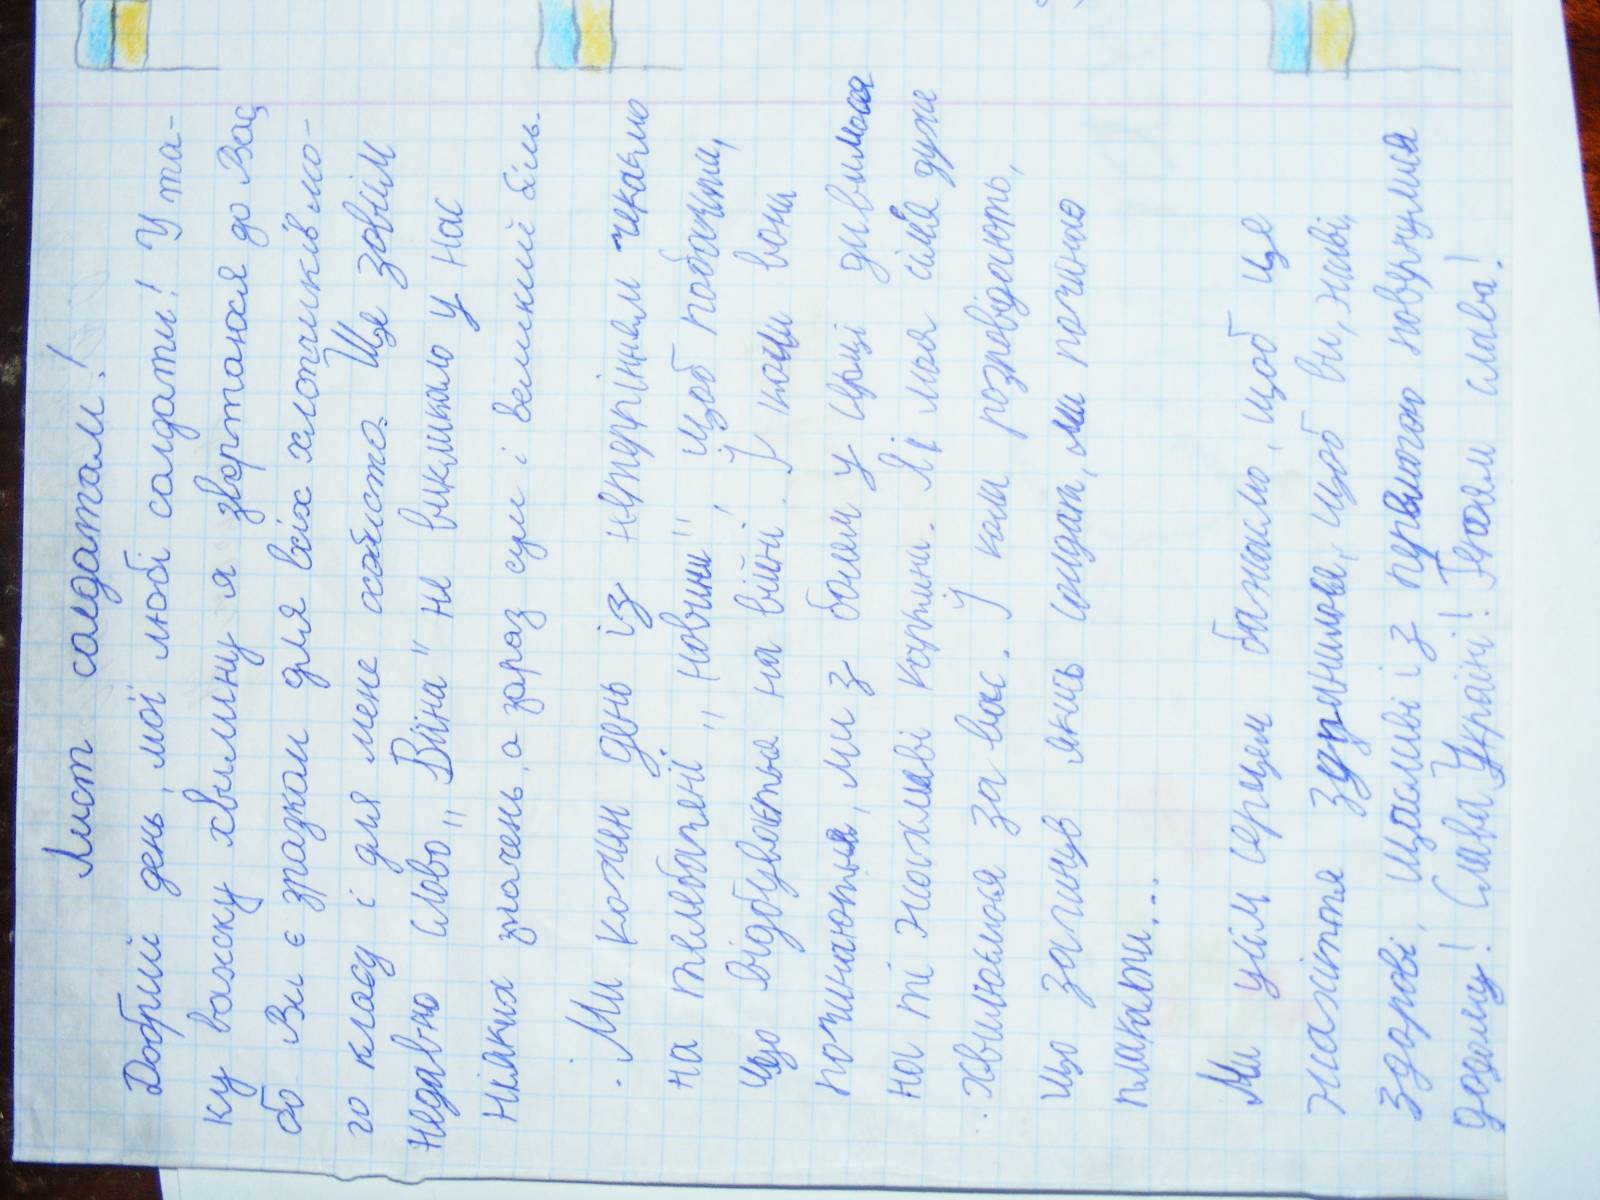 Лист солдатам!
Добрий день, мої любі солдати! У та-
ку важку хвилину я звертаюся до Вас,
бо Ви є зразком для всіх хлопчиків мо-
го класу і для мене особисто. Ще зовсім
недавно слово „Війна" не викликало у нас
ніяких значень, а зараз сум і великий біль.
Ми кожен день із нетерпінням чекаємо
на телебачені „новини" щоб побачити,
що відбувається на війні! І коли вони
починаються, ми з болем у серці дивимося
на ті жахливі картини. Я і моя сімя дуже
хвилюємося за вас. І коли розповідають,
що загинув якись солдат, ми починаю
плакати...
Ми усім серцем бажаємо, щоб це
жахіття зупинилося, щоб ви, живі,
здорові, щасливі і з перемогою повернулися
додому! Слава Україні! Героям слава!